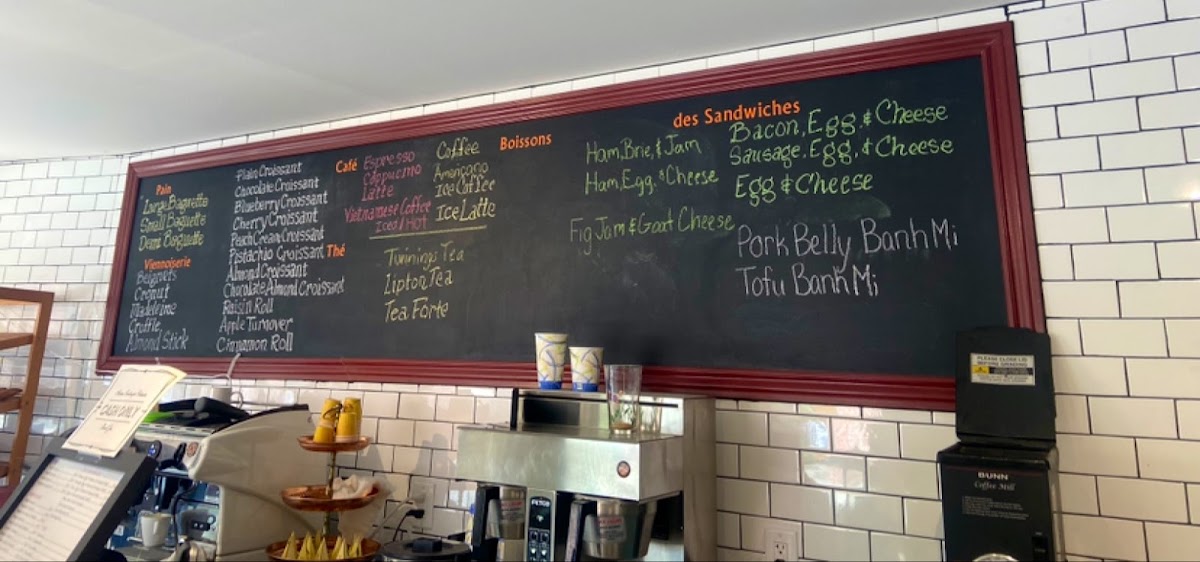 Pain
Large Baguette
Small Baguette
Demi Baguette
Viennoiserie
Beignets
Cronut
Madeleine
Croffle
Almond Stick
Plain Croissant
Chocolate Croissant
Blueberry Croissant
Cherry Croissant
Peach Cream Croissant
Pistachio Croissant
Almond Croissant
Chocolate Almond Croissant
Raisin Roll
Apple Turnover
Cinnamon Roll
Café
Espresso
Cappucino
Latte
Vietnamese Coffee
Iced/Hot
Coffee
Americano
Ice Coffee
Ice Latte
Thé
Twinings Tea
Lipton Tea
Tea Forte
Boissons
des Sandwiches
Ham, Brie, & Jam
Ham, Egg, & Cheese
Fig Jam & Goat Cheese
Bacon, Egg, & Cheese
Sausage, Egg, & Cheese
Egg & Cheese
Pork Belly Banh Mi
Tofu Banh Mi
CASH ONLY
FETCO
PLEASE CLOSE LID
BEFORE GRINDING
BUNN
Coffee Mill